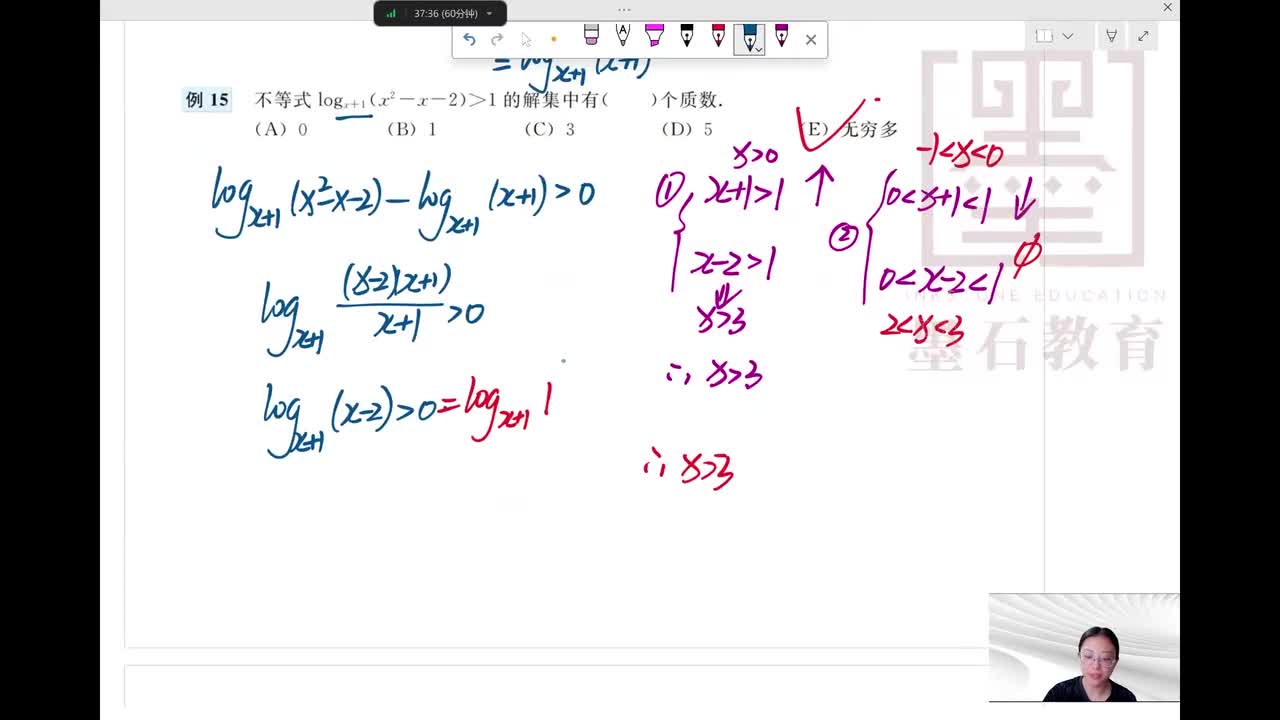 37:36 (60分钟)
= log_{x+1}(x+1)
例 15 不等式 log_{x+1}(x²－x－2)＞1 的解集中有( )个质数.
(A) 0 (B) 1 (C) 3 (D) 5 (E) 无穷多
log_{x+1}(x²-x-2) - log_{x+1}(x+1) > 0
log_{x+1} (x-2)(x+1)/(x+1) > 0
log_{x+1}(x-2) > 0 = log_{x+1} 1
x>0
① x+1>1 ↑
x-2>1
⇓
x>3
∴ x>3
∴ x>3
-1<x<0
② 0<x+1<1 ↓
0<x-2<1 ∅
2<x<3
墨
INK STONE EDUCATION
墨石教育